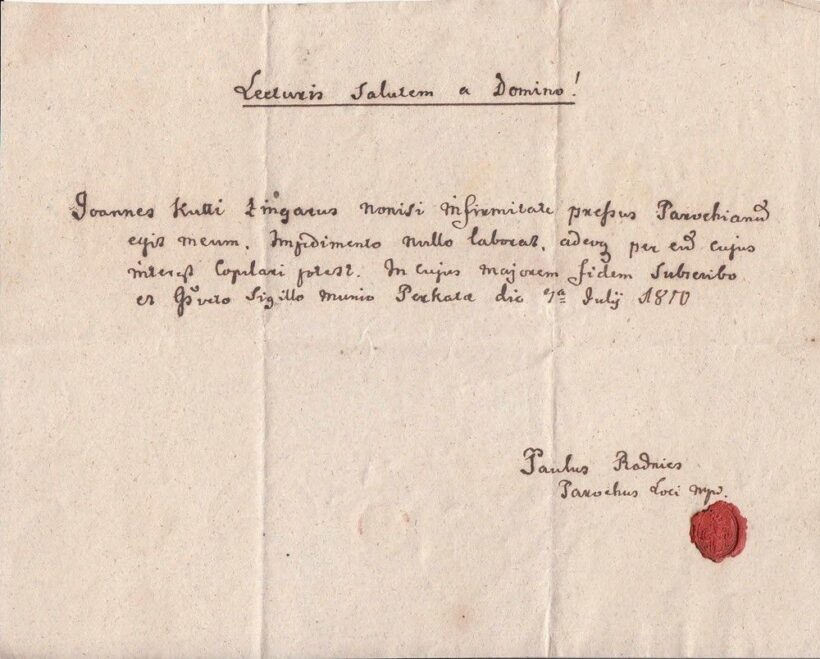 Lecturis Salutem a Domino!
Joannes Kutti Zingarus nonisi infirmitate pressus Parochianũ
egit meum. Impedimento nullo laborat, adeoq per eũ cujus
interest Copulari potest. In cujus majorem fidem Subscribo
et Sigillo munio Perkatæ die 7ª Julij 1810
Paulus Radnics
Parochus Loci mp.